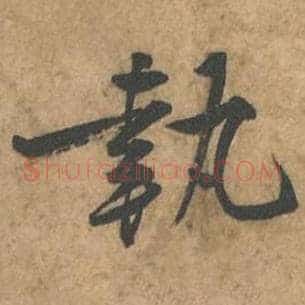 執
shufaziliao.com